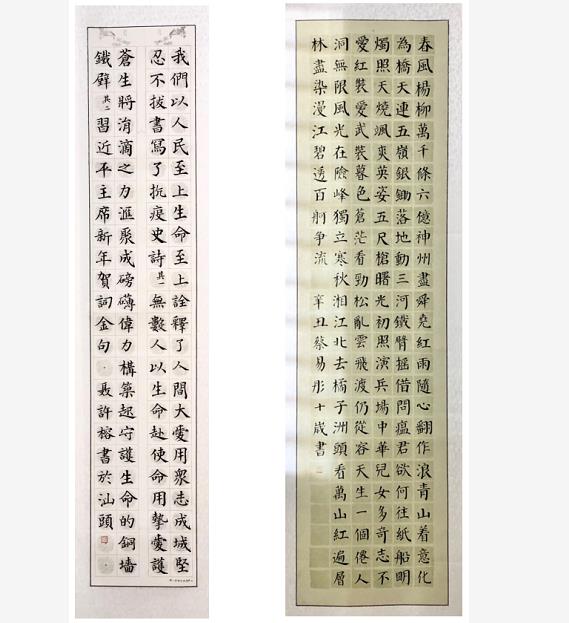 我們以人民至上生命至上詮釋了人間大愛用眾志成城堅
忍不拔書寫了抗疫史詩其一無數人以生命赴使命用摯愛護
蒼生將涓滴之力滙聚成磅礴偉力構築起守護生命的銅墻
鐵壁其二習近平主席新年賀詞金句·聶許榕書於汕頭
春風楊柳萬千條六億神州盡舜堯紅雨隨心翻作浪青山着意化
為橋天連五嶺銀鋤落地動三河鐵臂搖借問瘟君欲何往紙船明
燭照天燒颯爽英姿五尺槍曙光初照演兵場中華兒女多奇志不
愛紅裝愛武裝暮色蒼茫看勁松亂雲飛渡仍從容天生一個僊人
洞無限風光在險峰獨立寒秋湘江北去橘子洲頭看萬山紅遍層
林盡染漫江碧透百舸爭流 辛丑蔡易彤十歲書